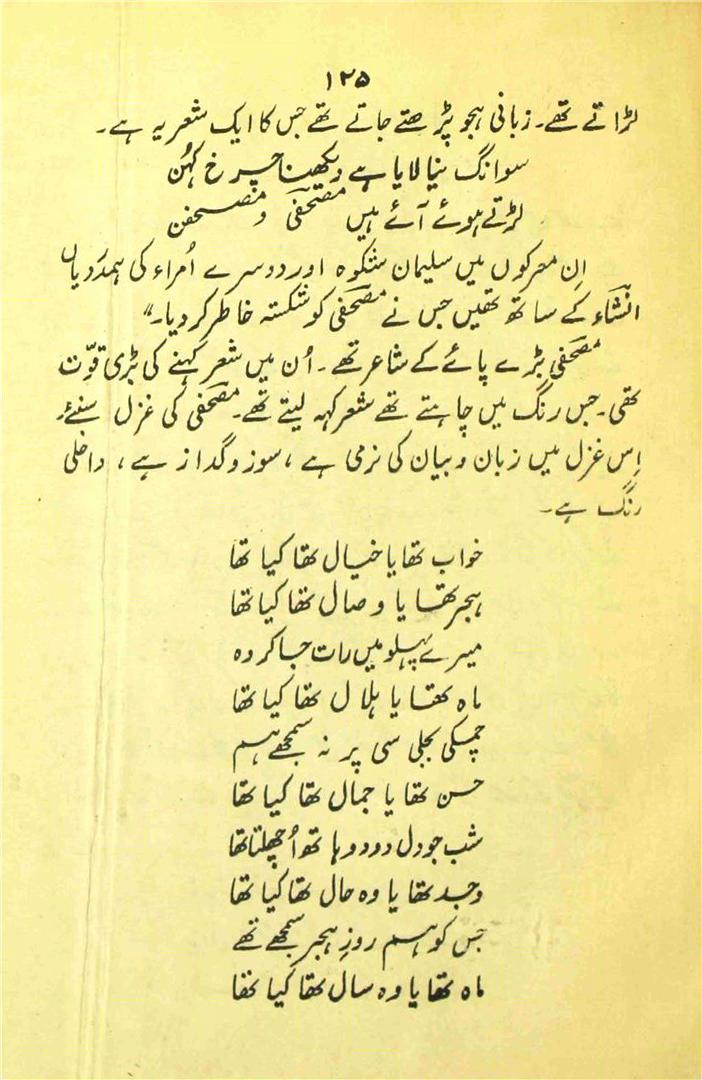 ۱۲۵
لڑاتے تھے۔ زبانی ہجو پڑھتے جاتے تھے جس کا ایک شعر یہ ہے۔
سوانگ نیا لایا ہے دیکھنا چرخ کہُن
لڑتے ہوئے آئے ہیں مصحفی و مصحفن
اِن معرکوں میں سلیمان شکوہ اور دوسرے اُمراء کی ہمدردیاں
انشاء کے ساتھ تھیں جس نے مصحفی کو شکستہ خاطر کر دیا۔"
مصحفی بڑے پائے کے شاعر تھے۔ اُن میں شعر کہنے کی بڑی قوّت
تھی۔ جس رنگ میں چاہتے تھے شعر کہہ لیتے تھے۔ مصحفی کی غزل سنئے
اِس غزل میں زبان و بیان کی نرمی ہے، سوز و گداز ہے، داخلی
رنگ ہے۔
خواب تھا یا خیال تھا کیا تھا
ہجر تھا یا وصال تھا کیا تھا
میرے پہلو میں رات جا کر وہ
ماہ تھا یا ہلال تھا کیا تھا
چمکی بجلی سی پر نہ سمجھے ہم
حسن تھا یا جمال تھا کیا تھا
شب جو دل دو دو ہاتھ اُچھلتا تھا
وجد تھا یا وہ حال تھا کیا تھا
جس کو ہم روزِ ہجر سمجھے تھے
ماہ تھا یا وہ سال تھا کیا تھا